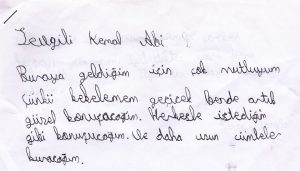 Sevgili Kemal Abi
Buraya geldiğim için çok mutluyum
Çünkü kekelemem geçicek bende artık
güzel konuşacağım. Herkesle istediğim
gibi konuşucağım. Ve daha uzun cümleler
kuracağım.